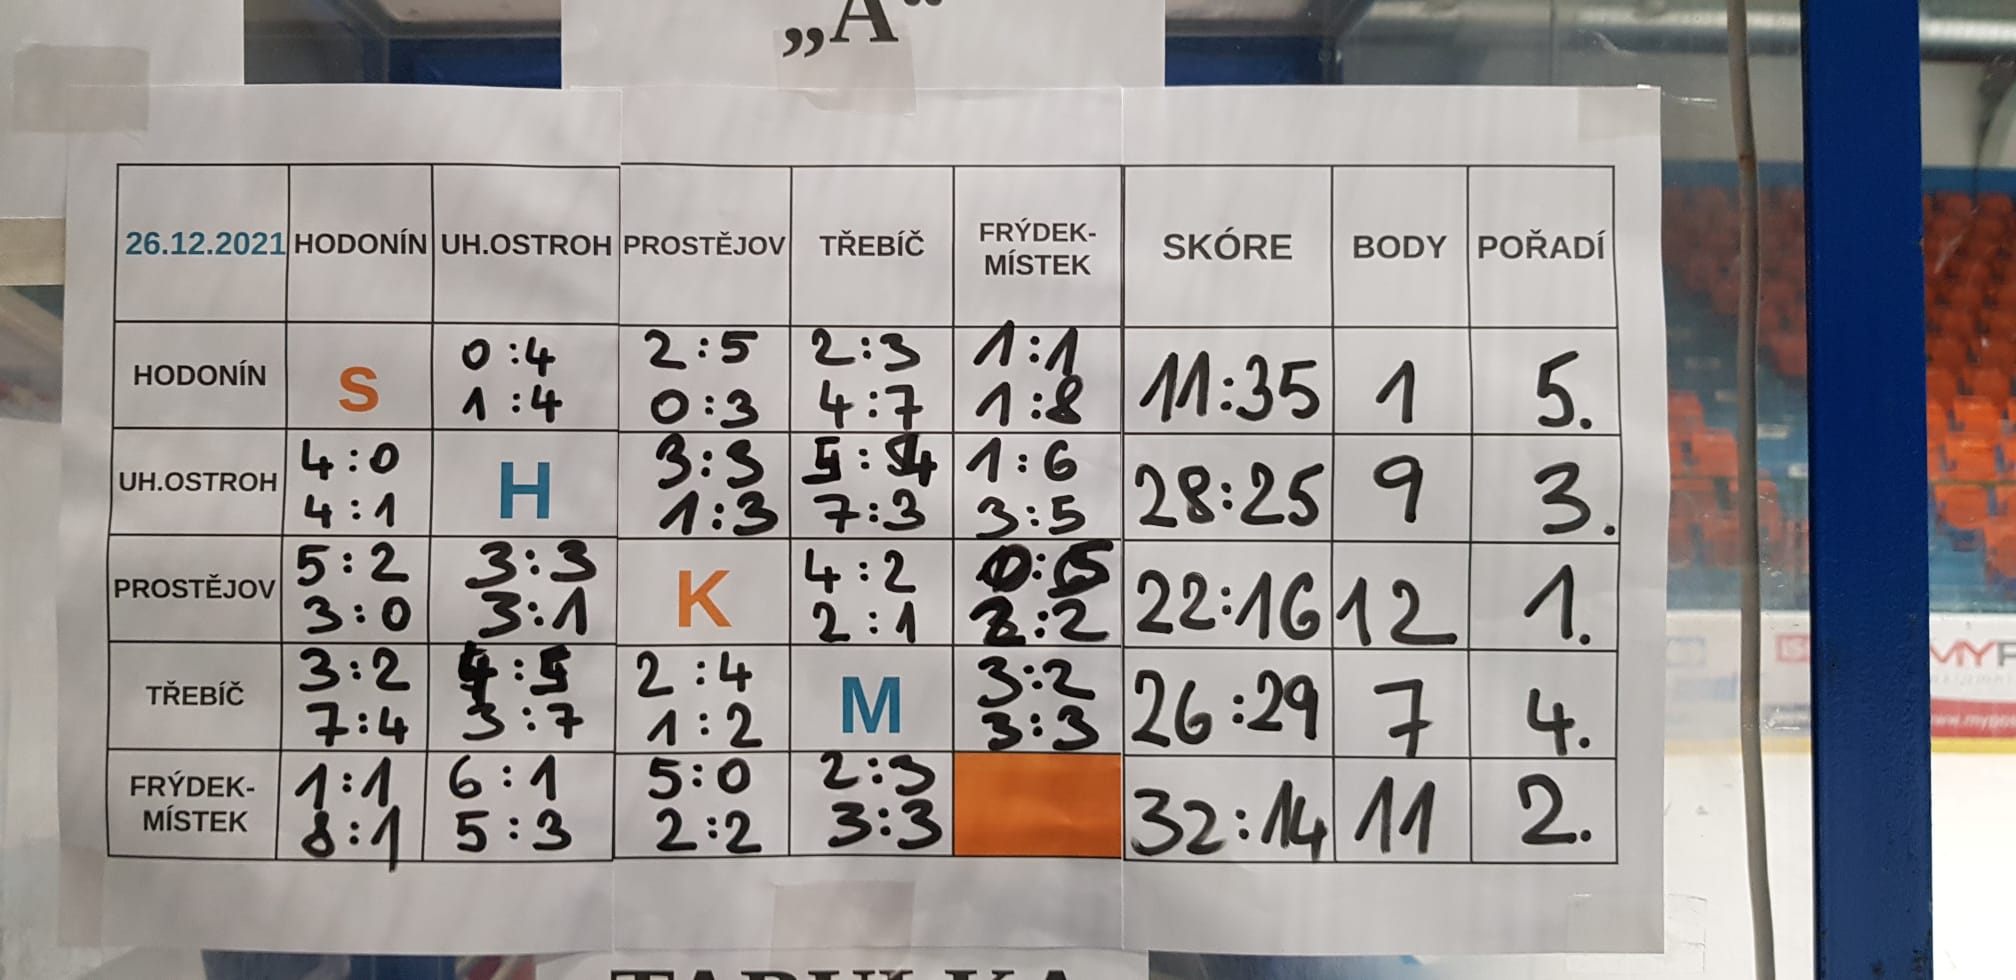 „A“
26.12.2021 HODONÍN UH.OSTROH PROSTĚJOV TŘEBÍČ FRÝDEK- SKÓRE BODY POŘADÍ
MÍSTEK
HODONÍN S 0:4 2:5 2:3 1:1 11:35 1 5.
1:4 0:3 4:7 1:8
UH.OSTROH 4:0 H 3:3 5:4 1:6 28:25 9 3.
4:1 1:3 7:3 3:5
PROSTĚJOV 5:2 3:3 K 4:2 0:5 22:16 12 1.
3:0 3:1 2:1 2:2
TŘEBÍČ 3:2 4:5 2:4 M 3:2 26:29 7 4.
7:4 3:7 1:2 3:3
FRÝDEK- 1:1 6:1 5:0 2:3 32:14 11 2.
MÍSTEK 8:1 5:3 2:2 3:3
TABULKA